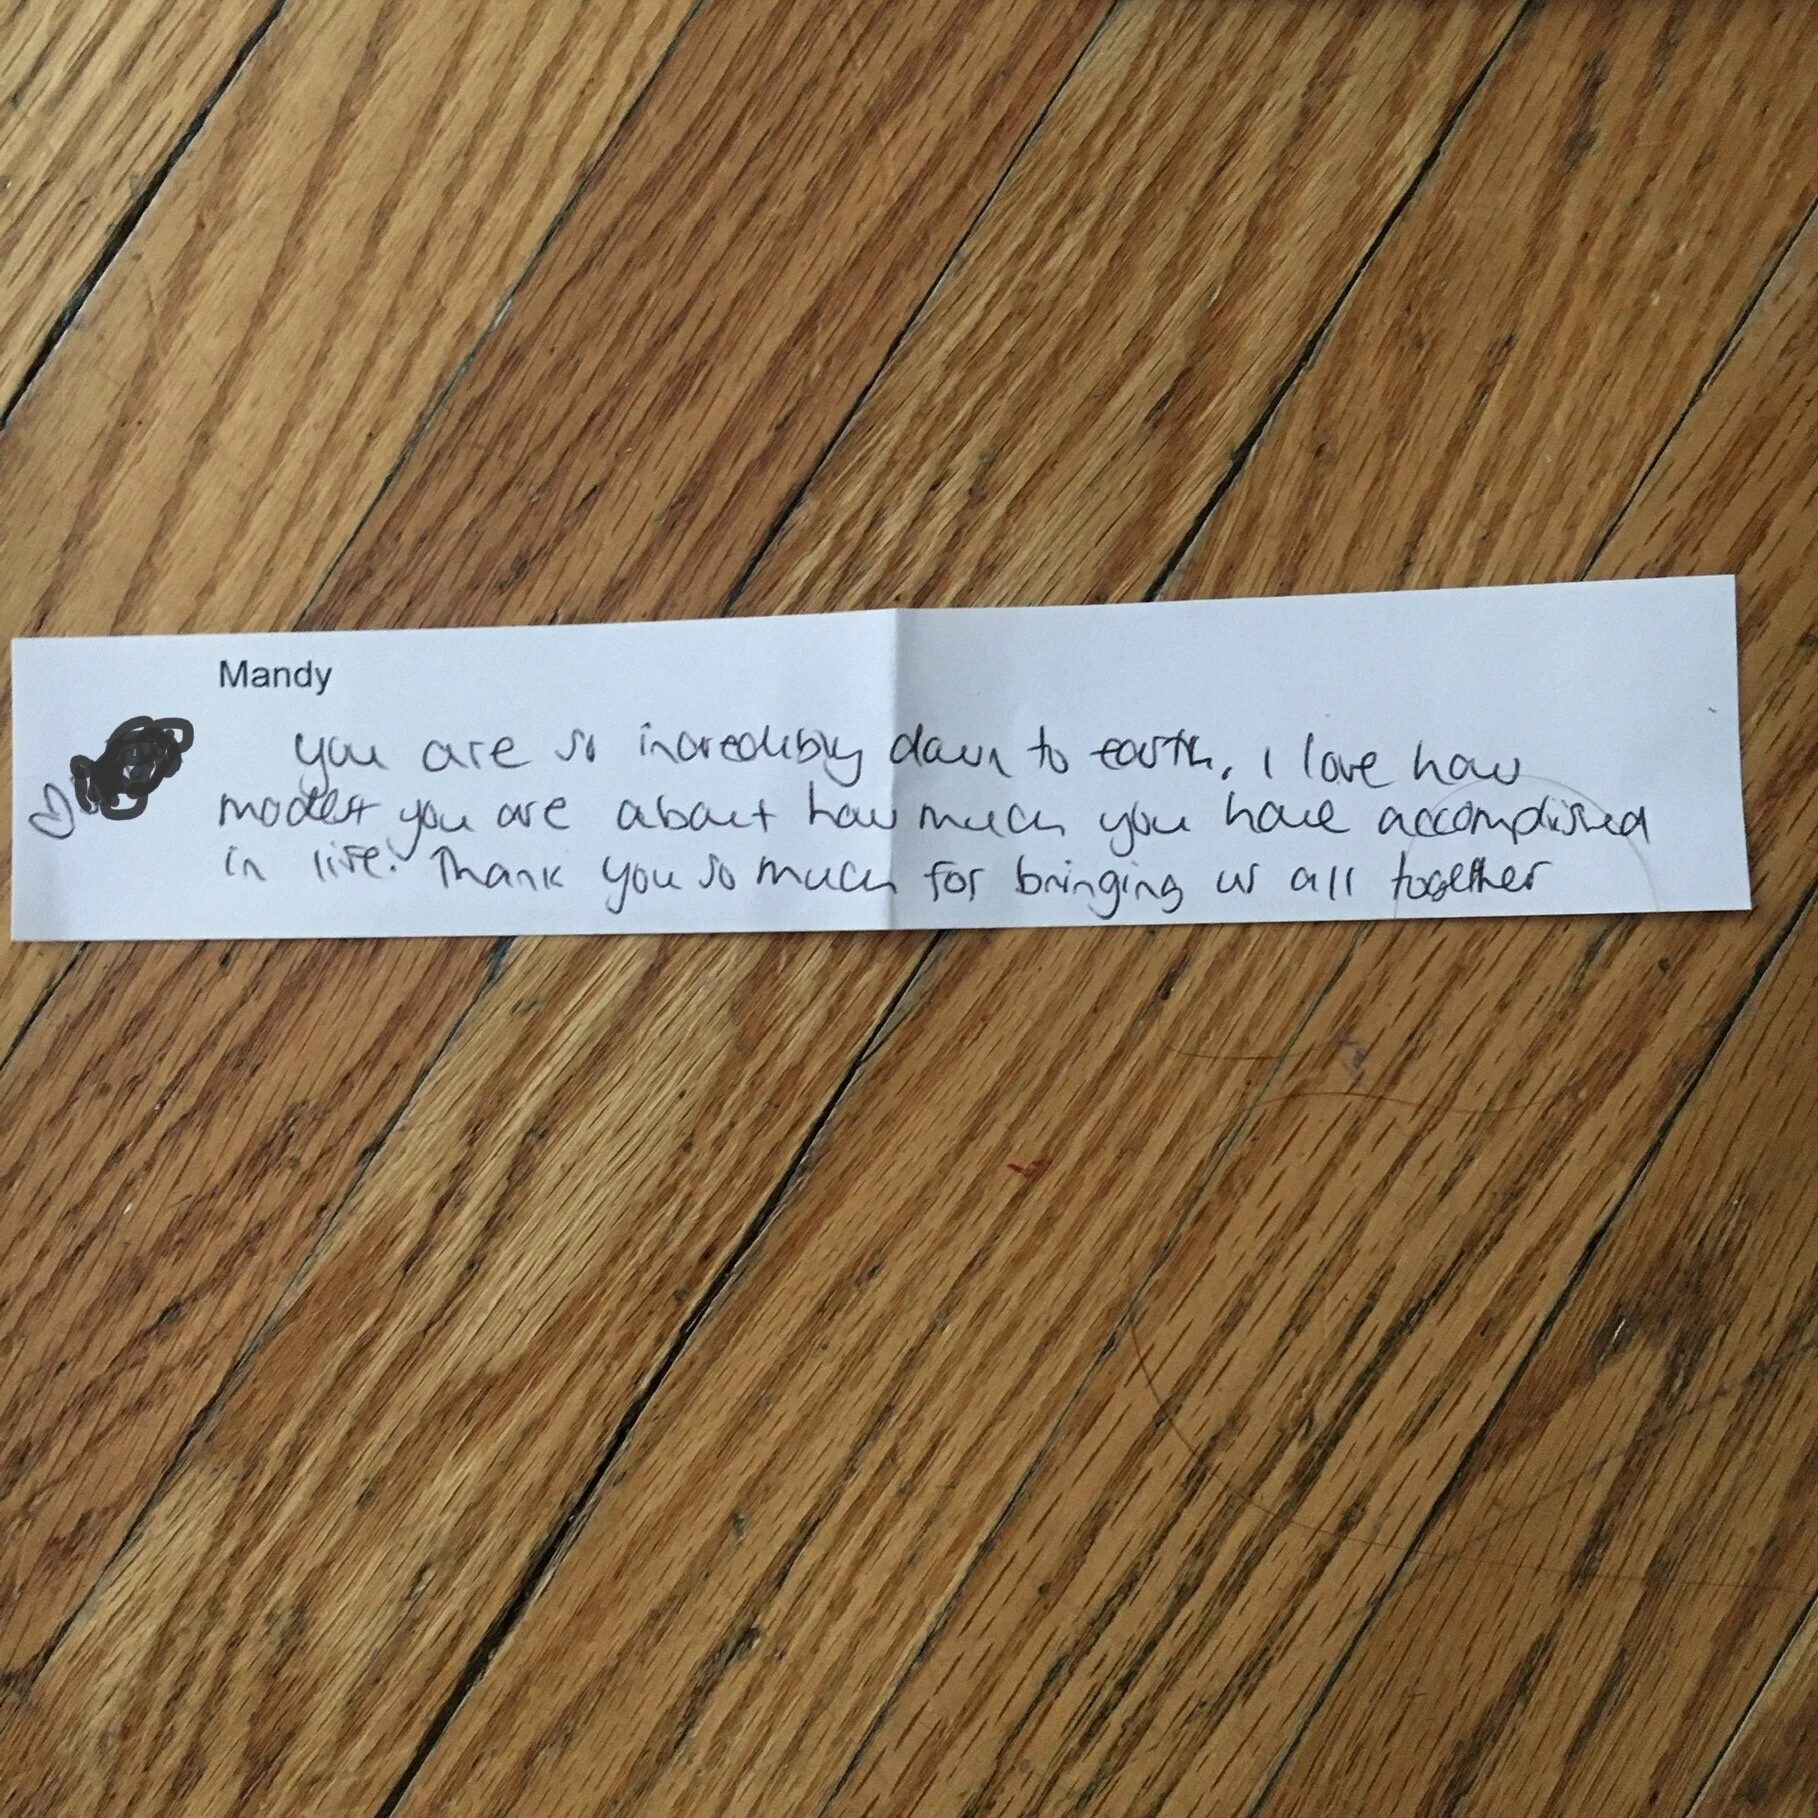 Mandy
you are so incredibly down to earth. I love how
modest you are about how much you have accomplished
in life. Thank you so much for bringing us all together